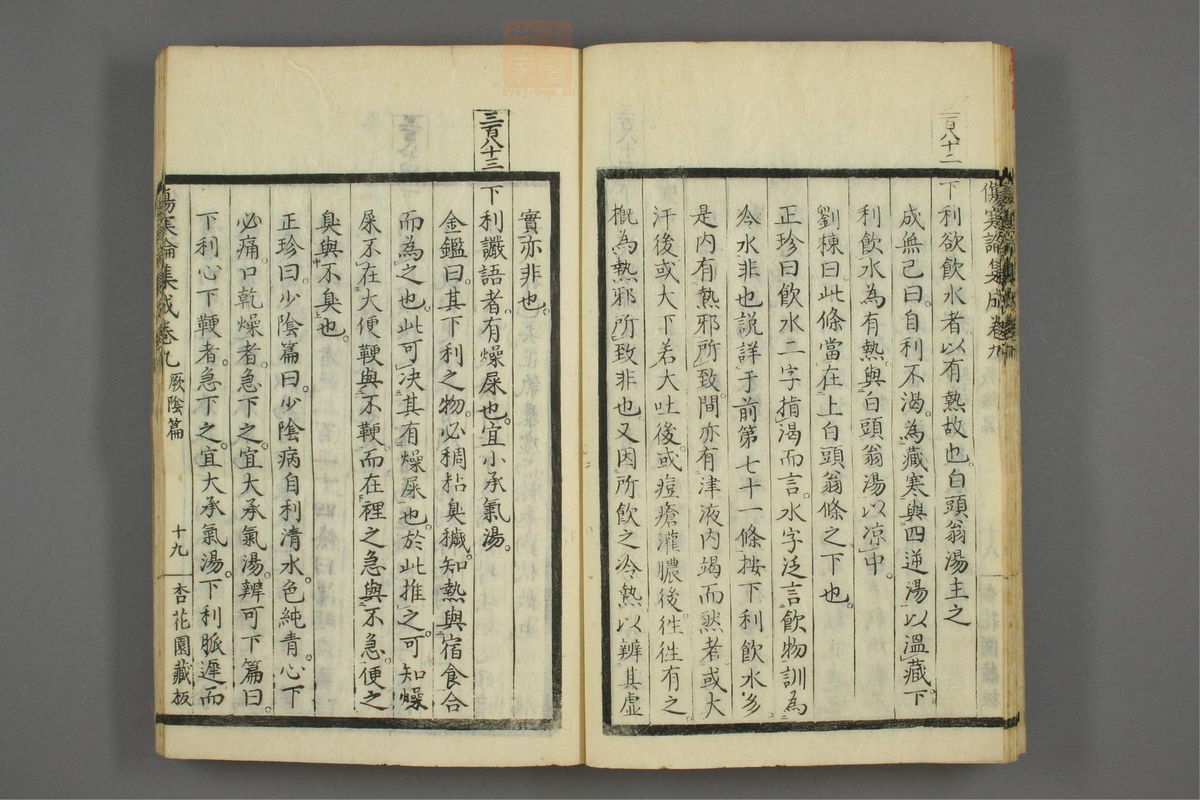 三百八十二
下利欲飲水者以有熱故也白頭翁湯主之
成無己曰自利不渴為藏寒與四逆湯以溫藏下
利飲水為有熱與白頭翁湯以凉中
劉棟曰此條當在上白頭翁條之下也
正珍曰飲水二字揹渴而言水字泛言飲物訓為
冷水非也說詳于前第七十一條按下利飲水多
是内有熱邪所致間亦有津液内竭而然者或大
汗後或大下若大吐後或痘瘡灌膿後徃徃有之
概為熱邪所致非也又因所飲之冷熱以辨其虛
傷寒論集成卷九
實亦非也
三百八十三
下利讝語者有燥屎也宜小承氣湯
金鑑曰其下利之物必稠粘臭穢知熱與宿食合
而為之也此可決其有燥屎也於此推之可知燥
屎不在大便鞕與不鞕而在裡之急與不急便之
臭與不臭也
正珍曰少陰篇曰少陰病自利清水色純青心下
必痛口乾燥者急下之宜大承氣湯辨可下篇曰
下利心下鞕者急下之宜大承氣湯下利脈遲而
傷寒論集成卷九 厥陰篇 十九 杏花園藏板